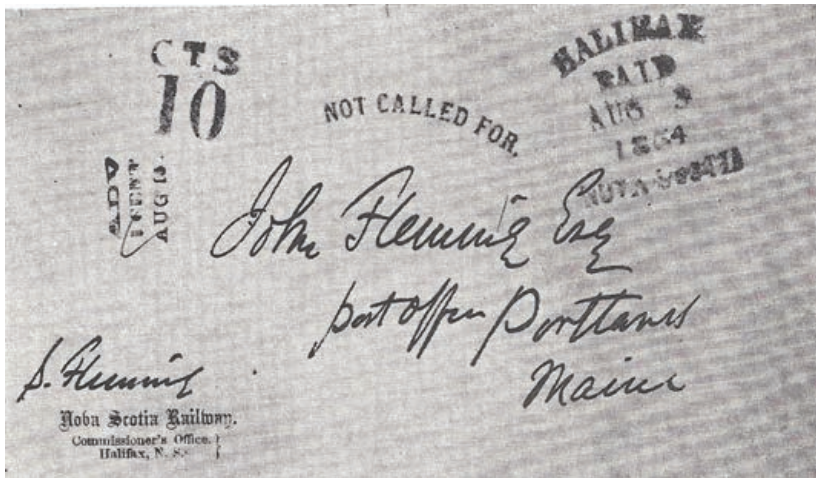 CTS
10
NOT CALLED FOR.
HALIFAX
PAID
AUG 3
1864
NOVA SCOTIA
ADV
1 CENT
AUG 13
John Fleming Esq
post office Portland
Maine
S. Fleming
Nova Scotia Railway.
Commissioner's Office,
Halifax, N. S.